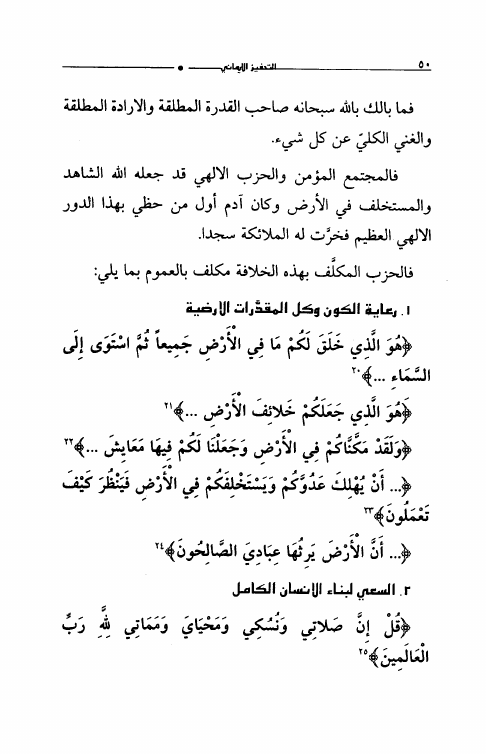 ٥٠ التحفيز الإيماني
فما بالك بالله سبحانه صاحب القدرة المطلقة والارادة المطلقة
والغني الكليّ عن كل شيء.
فالمجتمع المؤمن والحزب الالهي قد جعله الله الشاهد
والمستخلف في الأرض وكان آدم أول من حظي بهذا الدور
الالهي العظيم فخرَّت له الملائكة سجدا.
فالحزب المكلَّف بهذه الخلافة مكلف بالعموم بما يلي:
١. رعاية الكون وكل المقدَّرات الارضية
﴿هُوَ الَّذِي خَلَقَ لَكُمْ مَا فِي الْأَرْضِ جَمِيعاً ثُمَّ اسْتَوَى إِلَى
السَّمَاءِ ...﴾٢٠
﴿هُوَ الَّذِي جَعَلَكُمْ خَلَائِفَ الْأَرْضِ ...﴾٢١
﴿وَلَقَدْ مَكَّنَّاكُمْ فِي الْأَرْضِ وَجَعَلْنَا لَكُمْ فِيهَا مَعَايِشَ ...﴾٢٢
﴿... أَنْ يُهْلِكَ عَدُوَّكُمْ وَيَسْتَخْلِفَكُمْ فِي الْأَرْضِ فَيَنْظُرَ كَيْفَ
تَعْمَلُونَ﴾٢٣
﴿... أَنَّ الْأَرْضَ يَرِثُهَا عِبَادِيَ الصَّالِحُونَ﴾٢٤
٢. السعي لبناء الانسان الكامل
﴿قُلْ إِنَّ صَلَاتِي وَنُسُكِي وَمَحْيَايَ وَمَمَاتِي لِلَّهِ رَبِّ
الْعَالَمِينَ﴾٢٥